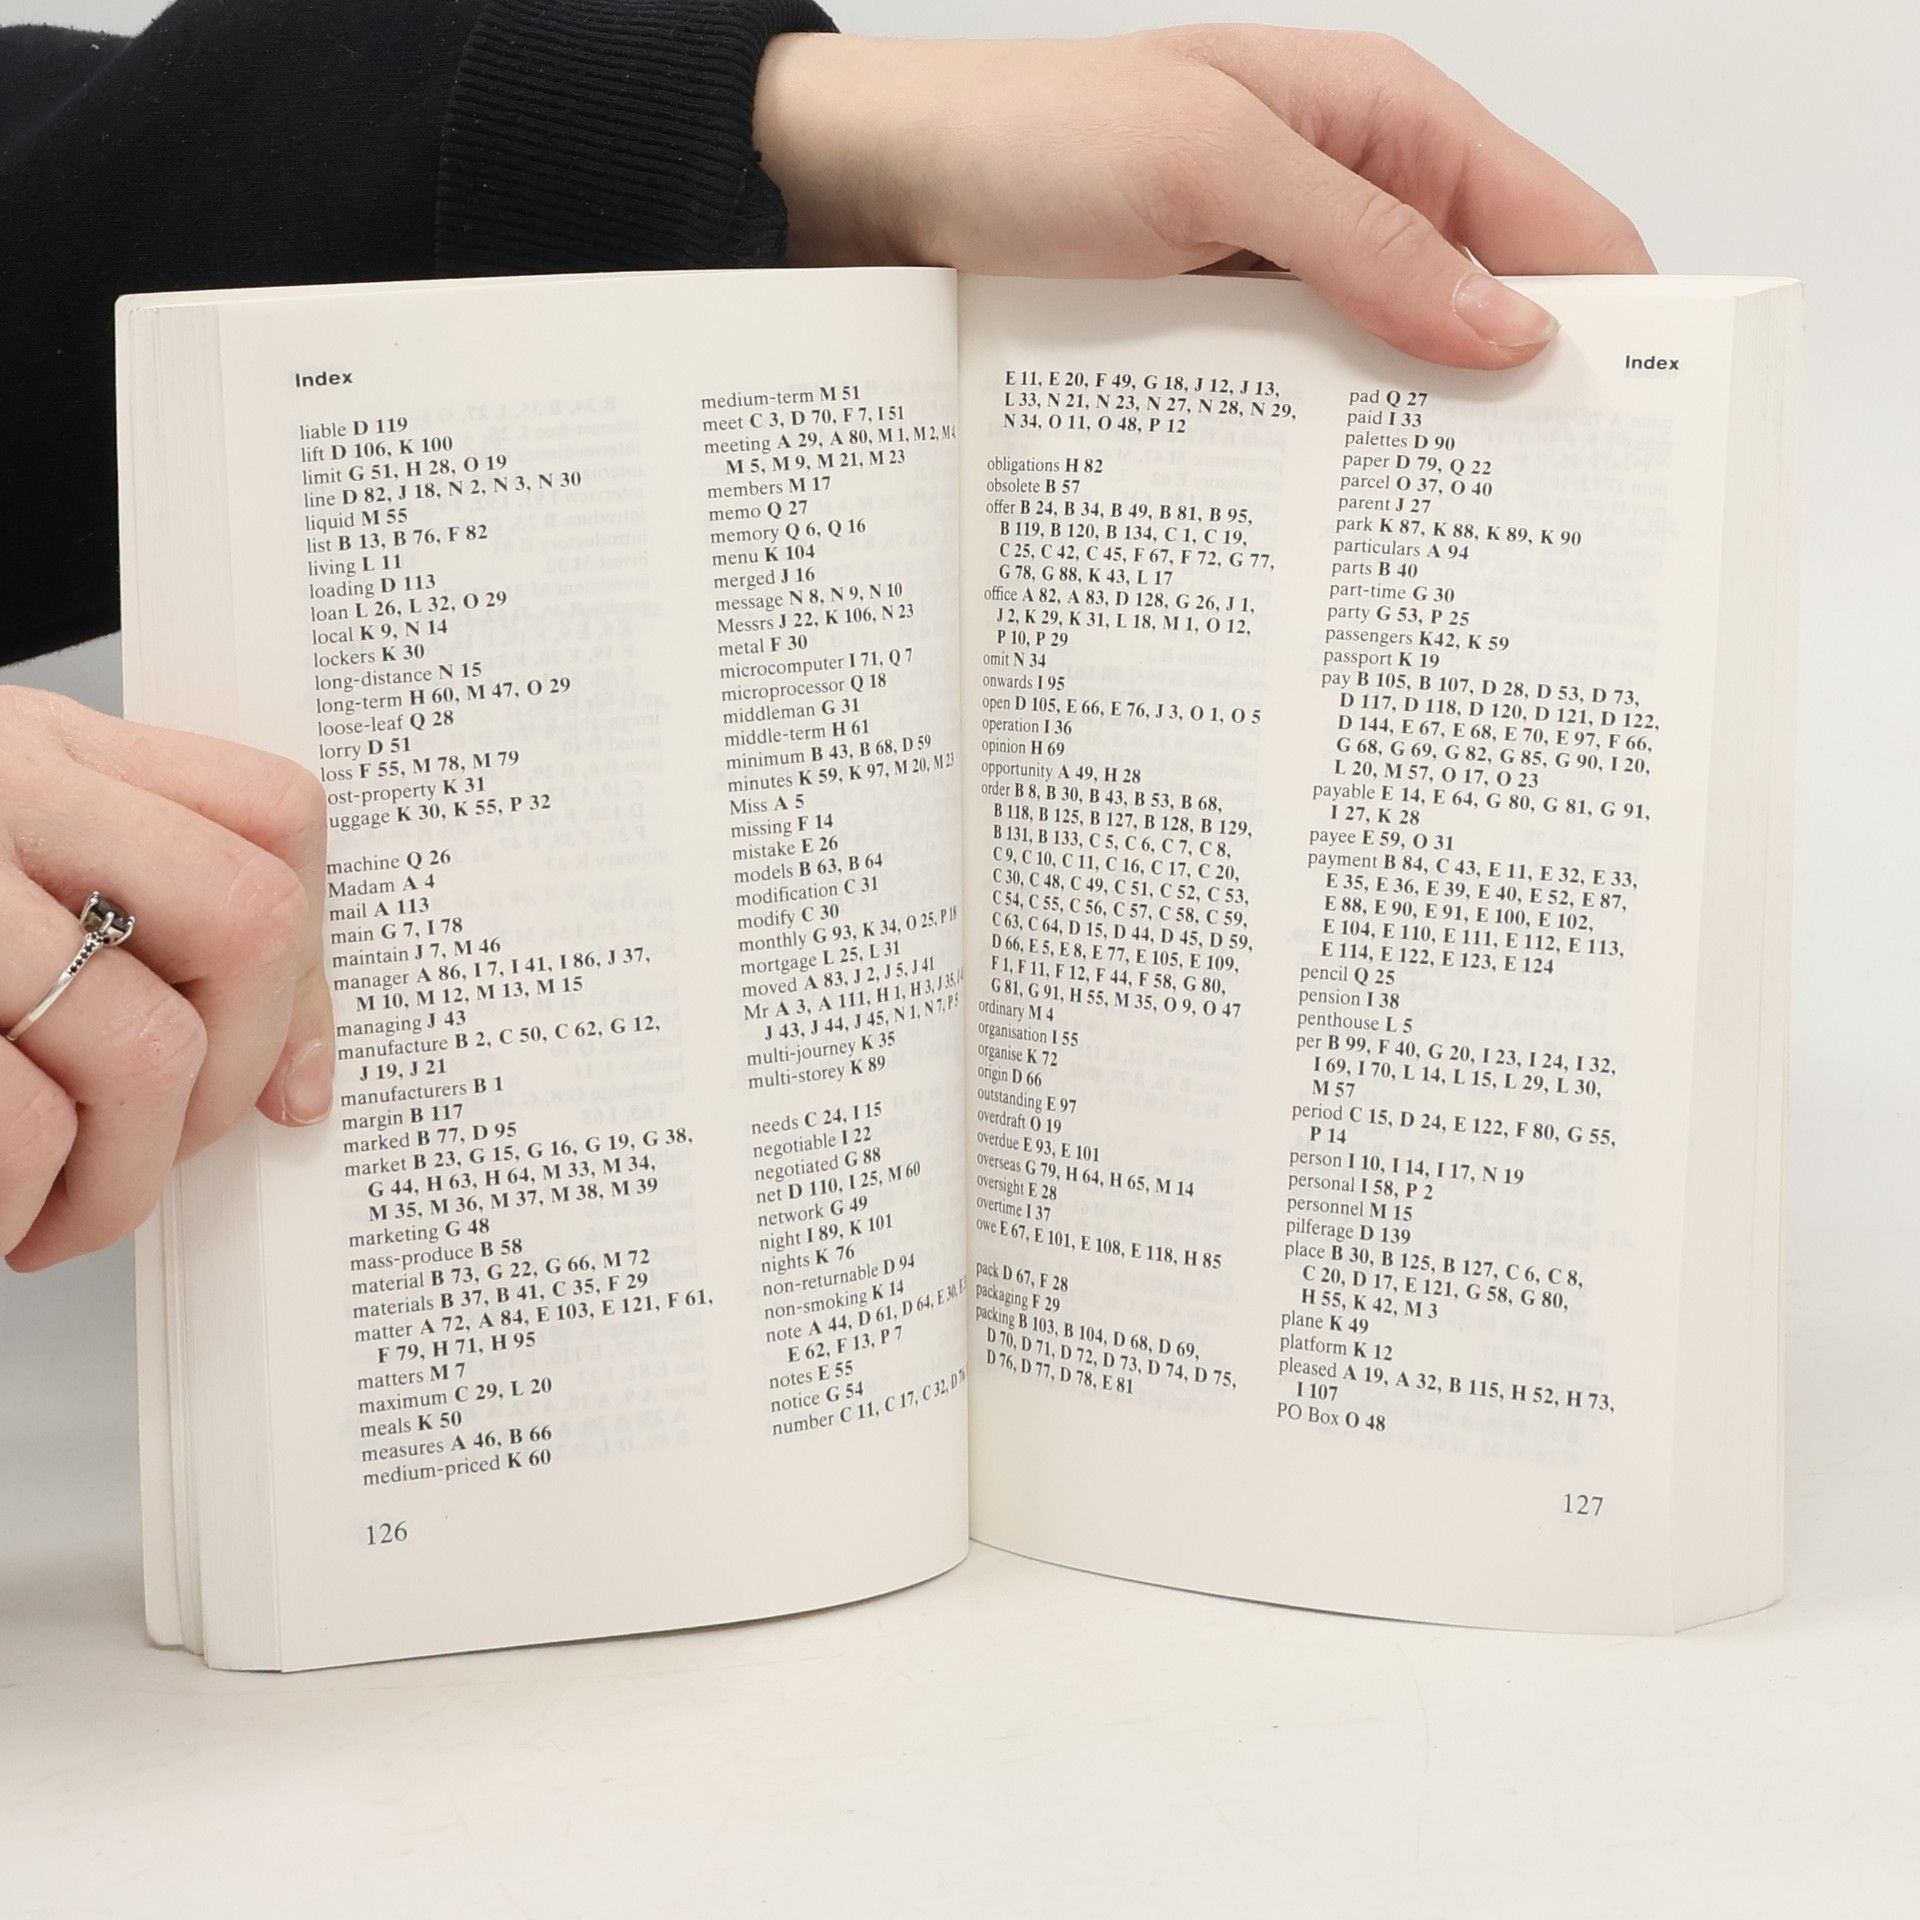 Index
liable D 119
lift D 106, K 100
limit G 51, H 28, O 19
line D 82, J 18, N 2, N 3, N 30
liquid M 55
list B 13, B 76, F 82
living L 11
loading D 113
loan L 26, L 32, O 29
local K 9, N 14
lockers K 30
long-distance N 15
long-term H 60, M 47, O 29
loose-leaf Q 28
lorry D 51
loss F 55, M 78, M 79
ost-property K 31
uggage K 30, K 55, P 32
machine Q 26
Madam A 4
mail A 113
main G 7, I 78
maintain J 7, M 46
manager A 86, I 7, I 41, I 86, J 37,
M 10, M 12, M 13, M 15
managing J 43
manufacture B 2, C 50, C 62, G 12,
J 19, J 21
manufacturers B 1
margin B 117
marked B 77, D 95
market B 23, G 15, G 16, G 19, G 38,
G 44, H 63, H 64, M 33, M 34,
M 35, M 36, M 37, M 38, M 39
marketing G 48
mass-produce B 58
material B 73, G 22, G 66, M 72
materials B 37, B 41, C 35, F 29
matter A 72, A 84, E 103, E 121, F 61,
F 79, H 71, H 95
matters M 7
maximum C 29, L 20
meals K 50
measures A 46, B 66
medium-priced K 60
126
medium-term M 51
meet C 3, D 70, F 7, I 51
meeting A 29, A 80, M 1, M 2, M 4,
M 5, M 9, M 21, M 23
members M 17
memo Q 27
memory Q 6, Q 16
menu K 104
merged J 16
message N 8, N 9, N 10
Messrs J 22, K 106, N 23
metal F 30
microcomputer I 71, Q 7
microprocessor Q 18
middleman G 31
middle-term H 61
minimum B 43, B 68, D 59
minutes K 59, K 97, M 20, M 23
Miss A 5
missing F 14
mistake E 26
models B 63, B 64
modification C 31
modify C 30
monthly G 93, K 34, O 25, P 18
mortgage L 25, L 31
moved A 83, J 2, J 5, J 41
Mr A 3, A 111, H 1, H 3, J 35,
J 43, J 44, J 45, N 1, N 7, P 5
multi-journey K 35
multi-storey K 89
needs C 24, I 15
negotiable I 22
negotiated G 88
net D 110, I 25, M 60
network G 49
night I 89, K 101
nights K 76
non-returnable D 94
non-smoking K 14
note A 44, D 61, D 64, E 30,
E 62, F 13, P 7
notes E 55
notice G 54
number C 11, C 17, C 32,
Index
E 11, E 20, F 49, G 18, J 12, J 13,
L 33, N 21, N 23, N 27, N 28, N 29,
N 34, O 11, O 48, P 12
obligations H 82
obsolete B 57
offer B 24, B 34, B 49, B 81, B 95,
B 119, B 120, B 134, C 1, C 19,
C 25, C 42, C 45, F 67, F 72, G 77,
G 78, G 88, K 43, L 17
office A 82, A 83, D 128, G 26, J 1,
J 2, K 29, K 31, L 18, M 1, O 12,
P 10, P 29
omit N 34
onwards I 95
open D 105, E 66, E 76, J 3, O 1, O 5
operation I 36
opinion H 69
opportunity A 49, H 28
order B 8, B 30, B 43, B 53, B 68,
B 118, B 125, B 127, B 128, B 129,
B 131, B 133, C 5, C 6, C 7, C 8,
C 9, C 10, C 11, C 16, C 17, C 20,
C 30, C 48, C 49, C 51, C 52, C 53,
C 54, C 55, C 56, C 57, C 58, C 59,
C 63, C 64, D 15, D 44, D 45, D 59,
D 66, E 5, E 8, E 77, E 105, E 109,
F 1, F 11, F 12, F 44, F 58, G 80,
G 81, G 91, H 55, M 35, O 9, O 47
ordinary M 4
organisation I 55
organise K 72
origin D 66
outstanding E 97
overdraft O 19
overdue E 93, E 101
overseas G 79, H 64, H 65, M 14
oversight E 28
overtime I 37
owe E 67, E 101, E 108, E 118, H 85
pack D 67, F 28
packaging F 29
packing B 103, B 104, D 68, D 69,
D 70, D 71, D 72, D 73, D 74, D 75,
D 76, D 77, D 78, E 81
pad Q 27
paid I 33
palettes D 90
paper D 79, Q 22
parcel O 37, O 40
parent J 27
park K 87, K 88, K 89, K 90
particulars A 94
parts B 40
part-time G 30
party G 53, P 25
passengers K42, K 59
passport K 19
pay B 105, B 107, D 28, D 53, D 73,
D 117, D 118, D 120, D 121, D 122,
D 144, E 67, E 68, E 70, E 97, F 66,
G 68, G 69, G 82, G 85, G 90, I 20,
L 20, M 57, O 17, O 23
payable E 14, E 64, G 80, G 81, G 91,
I 27, K 28
payee E 59, O 31
payment B 84, C 43, E 11, E 32, E 33,
E 35, E 36, E 39, E 40, E 52, E 87,
E 88, E 90, E 91, E 100, E 102,
E 104, E 110, E 111, E 112, E 113,
E 114, E 122, E 123, E 124
pencil Q 25
pension I 38
penthouse L 5
per B 99, F 40, G 20, I 23, I 24, I 32,
I 69, I 70, L 14, L 15, L 29, L 30,
M 57
period C 15, D 24, E 122, F 80, G 55,
P 14
person I 10, I 14, I 17, N 19
personal I 58, P 2
personnel M 15
pilferage D 139
place B 30, B 125, B 127, C 6, C 8,
C 20, D 17, E 121, G 58, G 80,
H 55, K 42, M 3
plane K 49
platform K 12
pleased A 19, A 32, B 115, H 52, H 73,
I 107
PO Box O 48
127